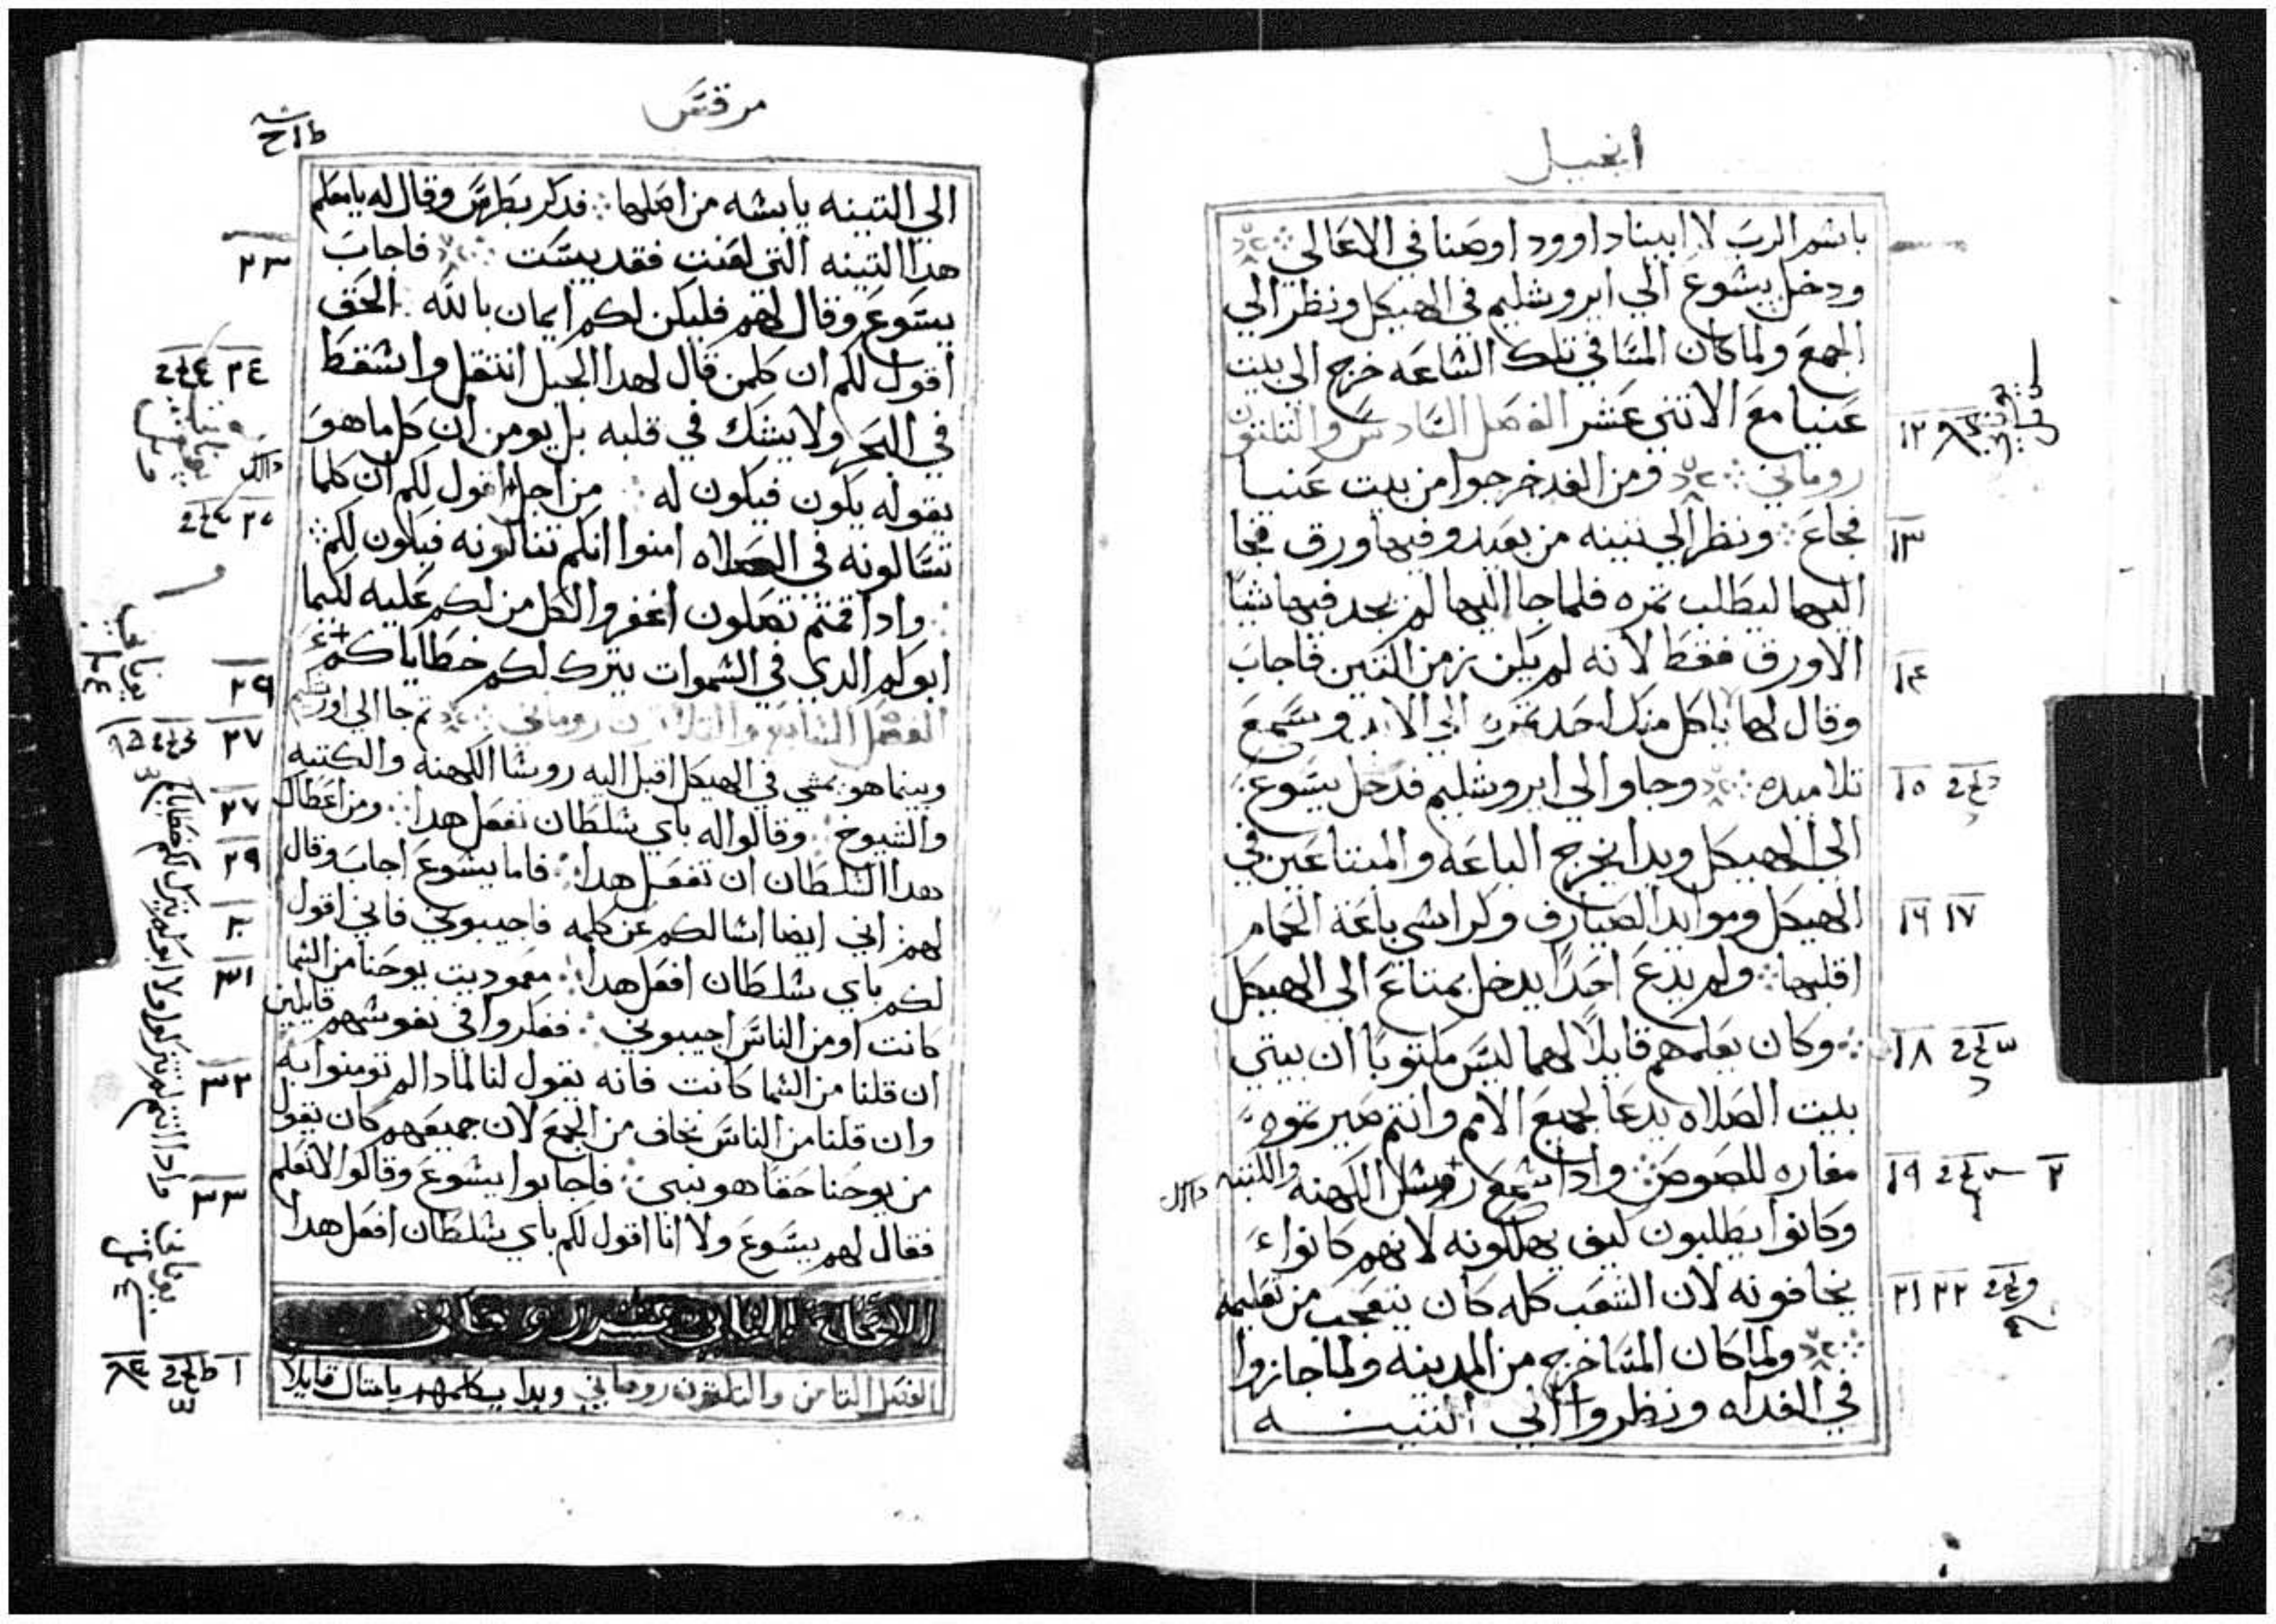 انجيل
باسم الرب لابينا داوود اوصنا في الاعالي
ودخل يسوع الي ايروشليم في الهيكل ونظر الي
الجمع ولما كان المسا في تلك الساعه خرج الي بيت
عنيا مع الاتني عشر الفصل السادس والتلتون
روماني ومن الغد خرجوا من بيت عنيا
فجاع ونظر الي تينه من بعيد وفيها ورق فجا
اليها ليطلب تمره فلما جا اليها لم يجد فيها شيا
الا ورق فقط لانه لم يكن زمن التين فاجاب
وقال لها ياكل منك احد تمره الي الابد وسمع
تلاميده وجاوا الي ايروشليم فدخل يسوع
الي الهيكل وبدا يخرج الباعه والمبتاعين في
الهيكل وموايد الصيارف وكراسي باعة الحمام
اقلبها ولم يدع احدًا يدخل بمتاع الي الهيكل
وكان يعلمهم قايلًا لهما ليس مكتوبًا ان بيتي
بيت الصلاه يدعا لجميع الامم وانتم صيرتموه
مغاره للصوص وادا سمع روسا الكهنه والكتبه
وكانوا يطلبون كيف يهلكونه لانهم كانوا
يخافونه لان الشعب كله كان يتعجب من تعليمه
ولما كان المسا خرج من المدينه ولما جازوا
في الغداه ونظروا الي التينه
١٢
١٣
١٤
١٥
١٦ ١٧
١٨
١٩
٢١ ٢٢
مرقس
الي التينه يابسه من اصلها فدكر بطرس وقال له يا معلم
هدا التينه التي لعنت فقد يبست فاجاب
يسوع وقال لهم فليكن لكم ايمان بالله الحق
اقول لكم ان كلمن قال لهدا الجبل انتقل واسقط
في البحر ولا يشك في قلبه بل يومن ان كل ما هو
يقوله يكون فيكون له من اجل اقول لكم ان كلما
تسالونه في الصلاه امنوا انكم تنالونه فيكون لكم
وادا قمتم تصلون اغفروا لكل من لكم عليه لكيما
ابوكم الدي في السموات يترك لكم خطاياكم
الفصل السابع والتلاتون روماني تم جا الي اورشليم
وبينما هو يمشي في الهيكل اقبل اليه روسا الكهنه والكتبه
والشيوخ وقالوا له باي سلطان تفعل هدا ومن اعطاك
هدا السلطان ان تفعل هدا فاما يسوع اجاب وقال
لهم اني ايضا اسالكم عن كلمه فاجيبوني فاني اقول
لكم باي سلطان افعل هدا معموديت يوحنا من السما
كانت او من الناس اجيبوني ففكروا في نفوسهم قايلين
ان قلنا من السما كانت فانه يقول لنا لمادا لم تومنوا به
وان قلنا من الناس نخاف من الجمع لان جميعهم كان يقول
من يوحنا حقا هو نبي فاجابوا يسوع وقالوا لا نعلم
فقال لهم يسوع ولا انا اقول لكم باي سلطان افعل هدا
الاصحاح التاني عشر روماني
الفصل التامن والتلتون روماني وبدا يكلمهم بامتال قايلًا
٢٣
٢٤
٢٩
٢٧
٢٧
٢٩
٣١
٣٢
٣٣
وادا انتم لم تتركوا ولا ابوكم يترك لكم خطاياكم
يوناني